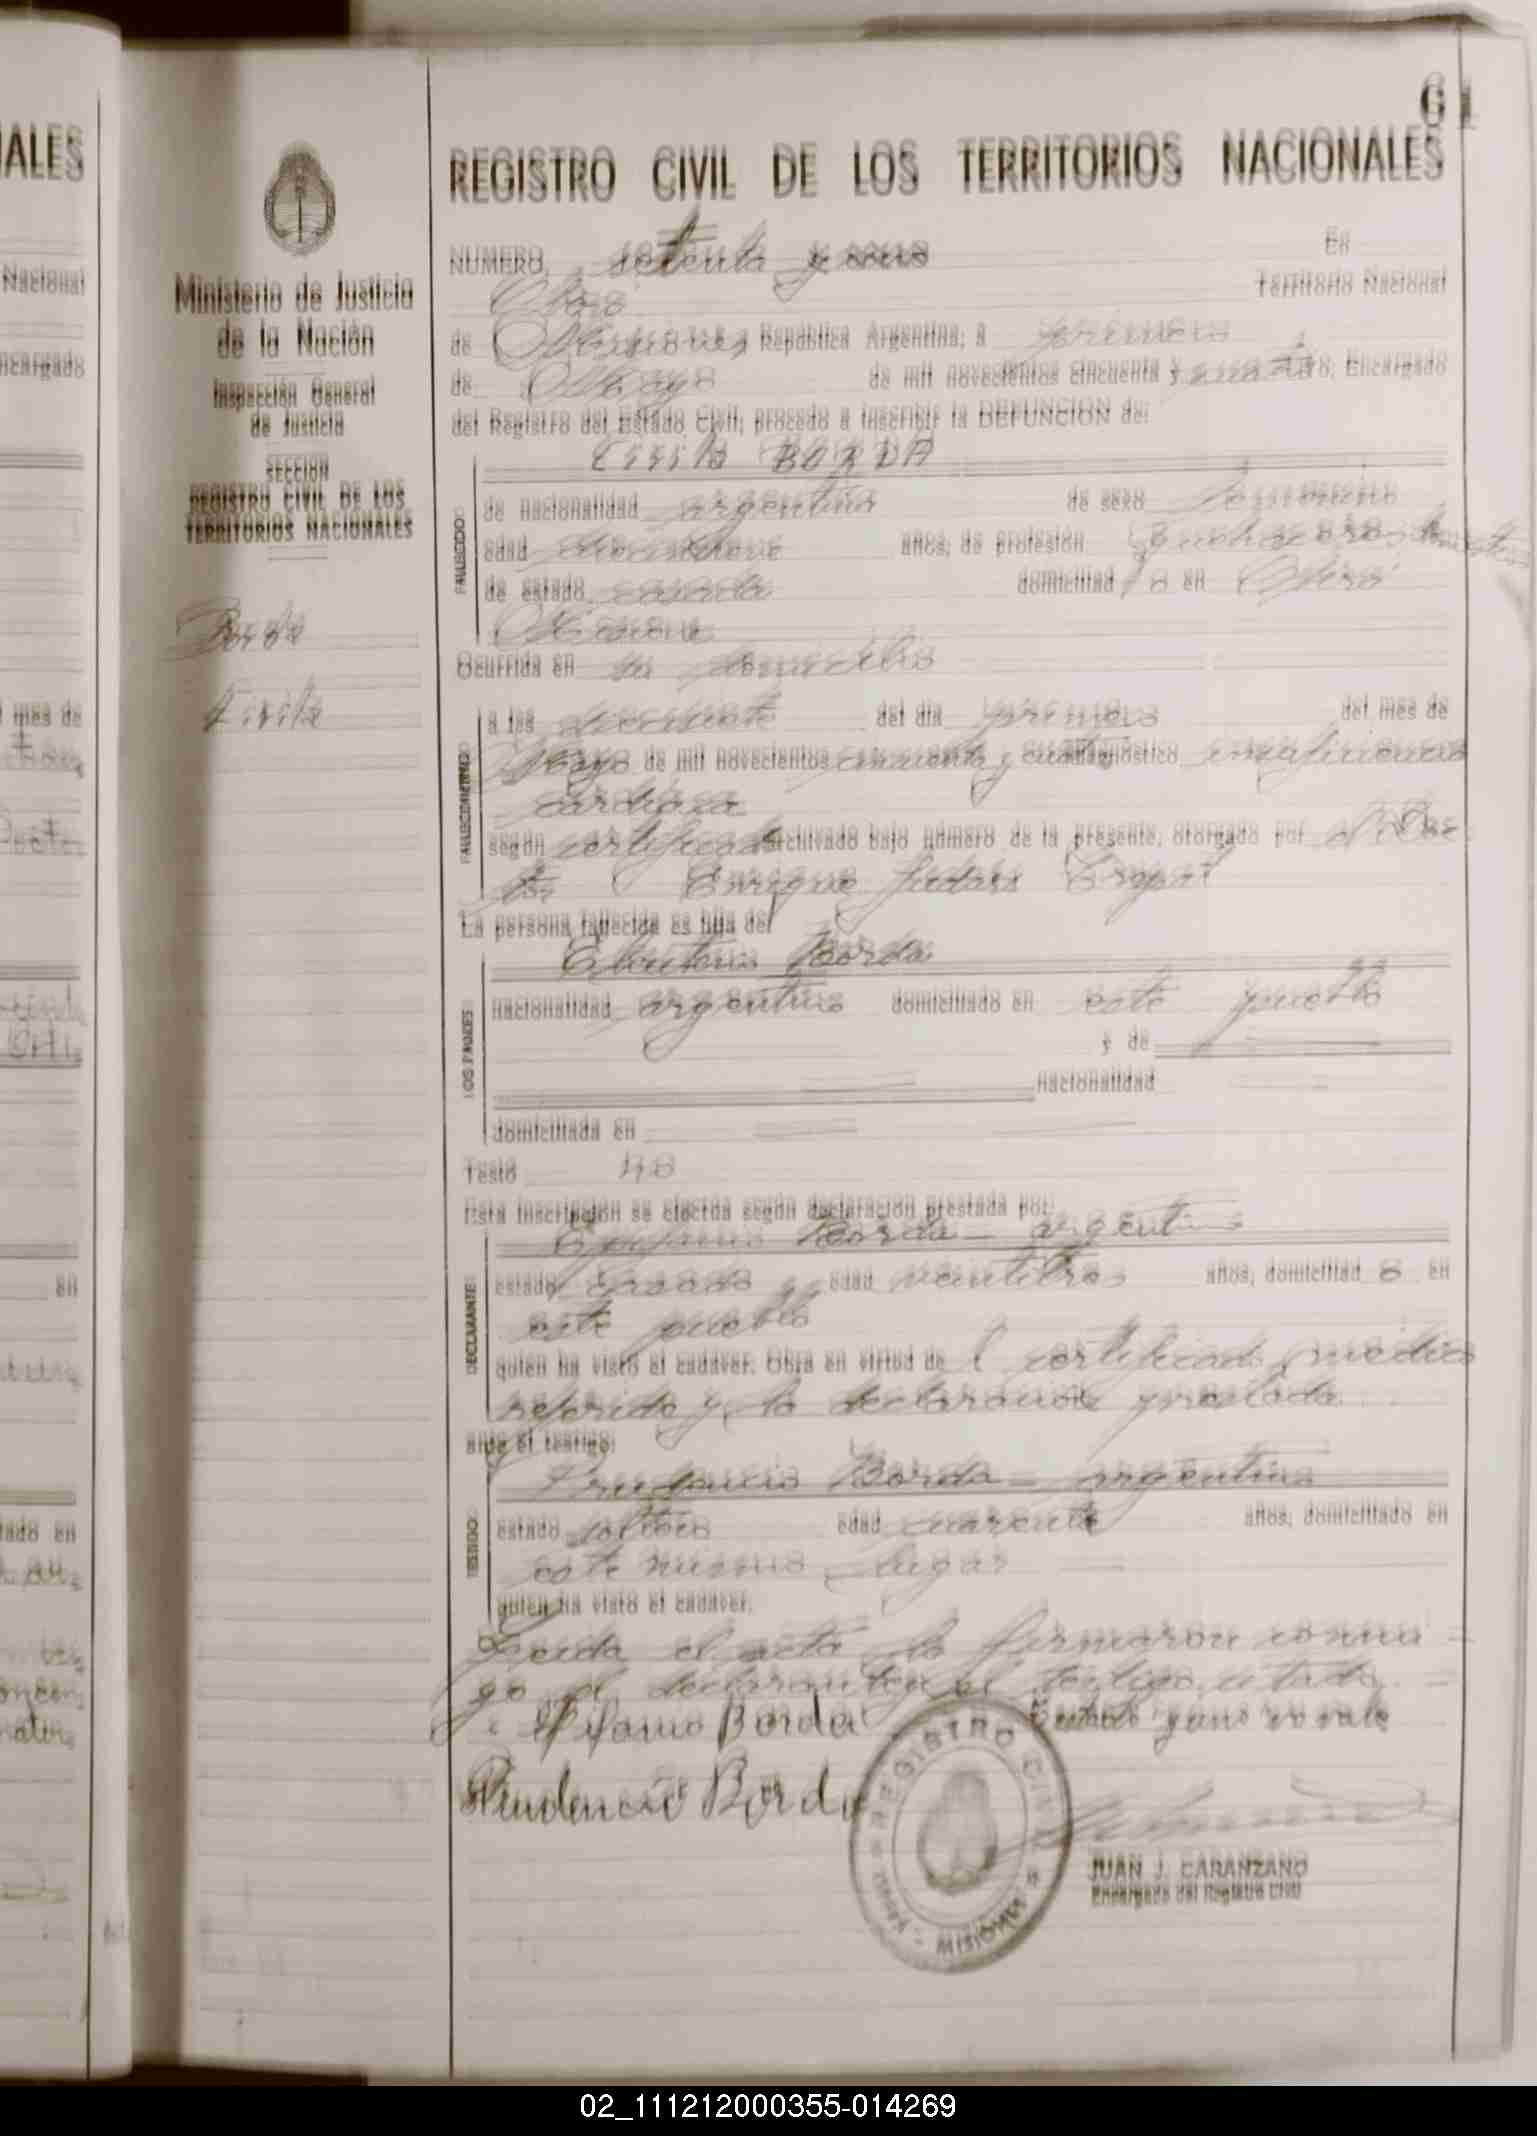 61
REGISTRO CIVIL DE LOS TERRITORIOS NACIONALES
NUMERO setenta y uno En
Oberá Territorio Nacional
de Misiones, República Argentina, a primero
de Mayo de mil novecientos cincuenta y cuatro, Encargado
del Registro del Estado Civil, procedo a inscribir la DEFUNCION de:
Cirila BORDA
FALLECIDO
de nacionalidad argentina de sexo femenino
edad años, de profesión
de estado casada domiciliad a en Oberá
Misiones
Ocurrida en su domicilio
FALLECIMIENTO
a las del día primero del mes de
Mayo de mil novecientos cincuenta y cuatro diagnóstico insuficiencia
cardíaca
según certificado archivado bajo número de la presente, otorgado por
Enrique
La persona fallecida es hija de
Eleuterio Borda
LOS PADRES
nacionalidad argentino domiciliado en este pueblo
y de
nacionalidad
domiciliada en
Testó
Esta inscripción se efectúa según declaración prestada por:
Epifanio Borda - argentino
DECLARANTE
estado casado edad veintitres años, domiciliad o en
este pueblo
quien ha visto el cadáver. Obra en virtud de l certificado médico
referido y la declaración prestada
ante el testigo:
Prudencio Borda - argentino
TESTIGO
estado soltero edad cuarenta años, domiciliado en
este mismo lugar
quien ha visto el cadáver.
Leida el acta la firmaron conmi-
go el declarante y el testigo citado. -
Epifanio Borda
Prudencio Borda
REGISTRO CIVIL
MISIONES
JUAN J. CARANZANO
Encargado del Registro Civil
Ministerio de Justicia
de la Nación
Inspección General
de Justicia
SECCION
REGISTRO CIVIL DE LOS
TERRITORIOS NACIONALES
Borda
Cirila
ALES
Nacional
ncargado
mes de
en
ado en
02_111212000355-014269